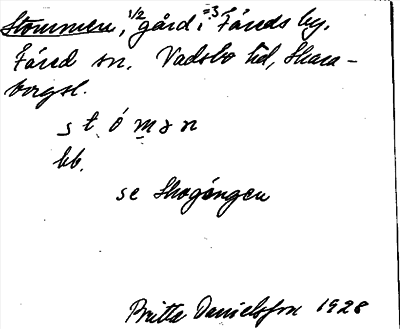 Stommen, 1/2 gård i =3 Fåreds by.
Fåred sn. Vadsbo hd, Skara-
borgsl.
s t ó m ə n
bb.
se Skogängen
Britta Danielsson 1928